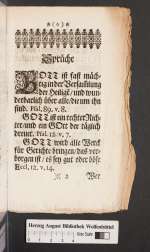 ※(o)※
Sprüche
GOTT ist fast mäch-
tig in der Versamlung
der Heilige/ und wun-
derbarlich über alle/ die um ihn
sind. Psal. 89. v. 8.
GOTT ist ein rechter Rich-
ter/ und ein GOtt der täglich
dreuet. Psal. 12. v. 7.
GOTT wird alle Werck
für Gerichte bringen/ das ver-
borgen ist/ es sey gut oder böse
Eccl. 12. v. 14.
Wer
Herzog August Bibliothek Wolfenbüttel